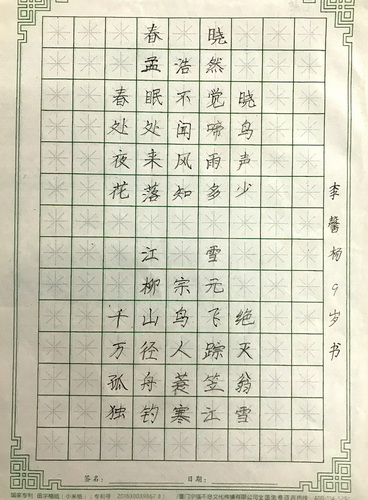 春 晓
孟浩然
春眠不觉晓
处处闻啼鸟
夜来风雨声
花落知多少
江 雪
柳宗元
千山鸟飞绝
万径人踪灭
孤舟蓑笠翁
独钓寒江雪
李馨杨9岁书
签名： 日期：